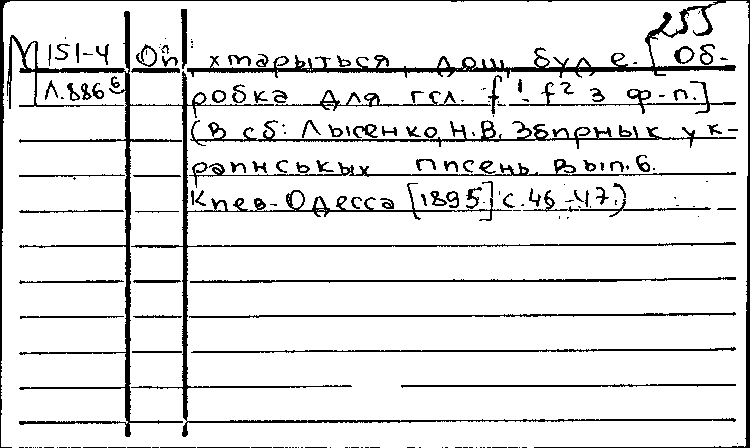 255
М 151-4 Ой, хмарыться, дощ буде. [Об-
Л.886б робка для гол. f¹-f² з ф-п.]
(В сб: Лысенко, Н.В. Збирнык ук-
раинськых писень. Вып. 6.
Киев-Одесса [1895] с. 46-47.)